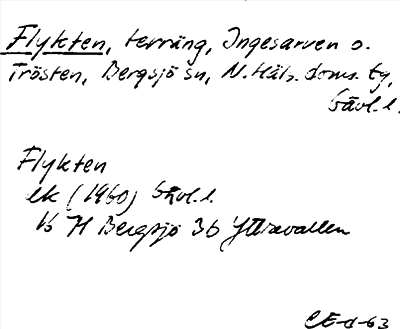 Flykten, terräng, Ingesarven o.
Trösten, Bergsjö sn, N. Häls. doms. tg,
Gävl. l.
Flykten
ek (1960) Gävl. l.
16 H Bergsjö 3b Yttravallen
CE-d-63